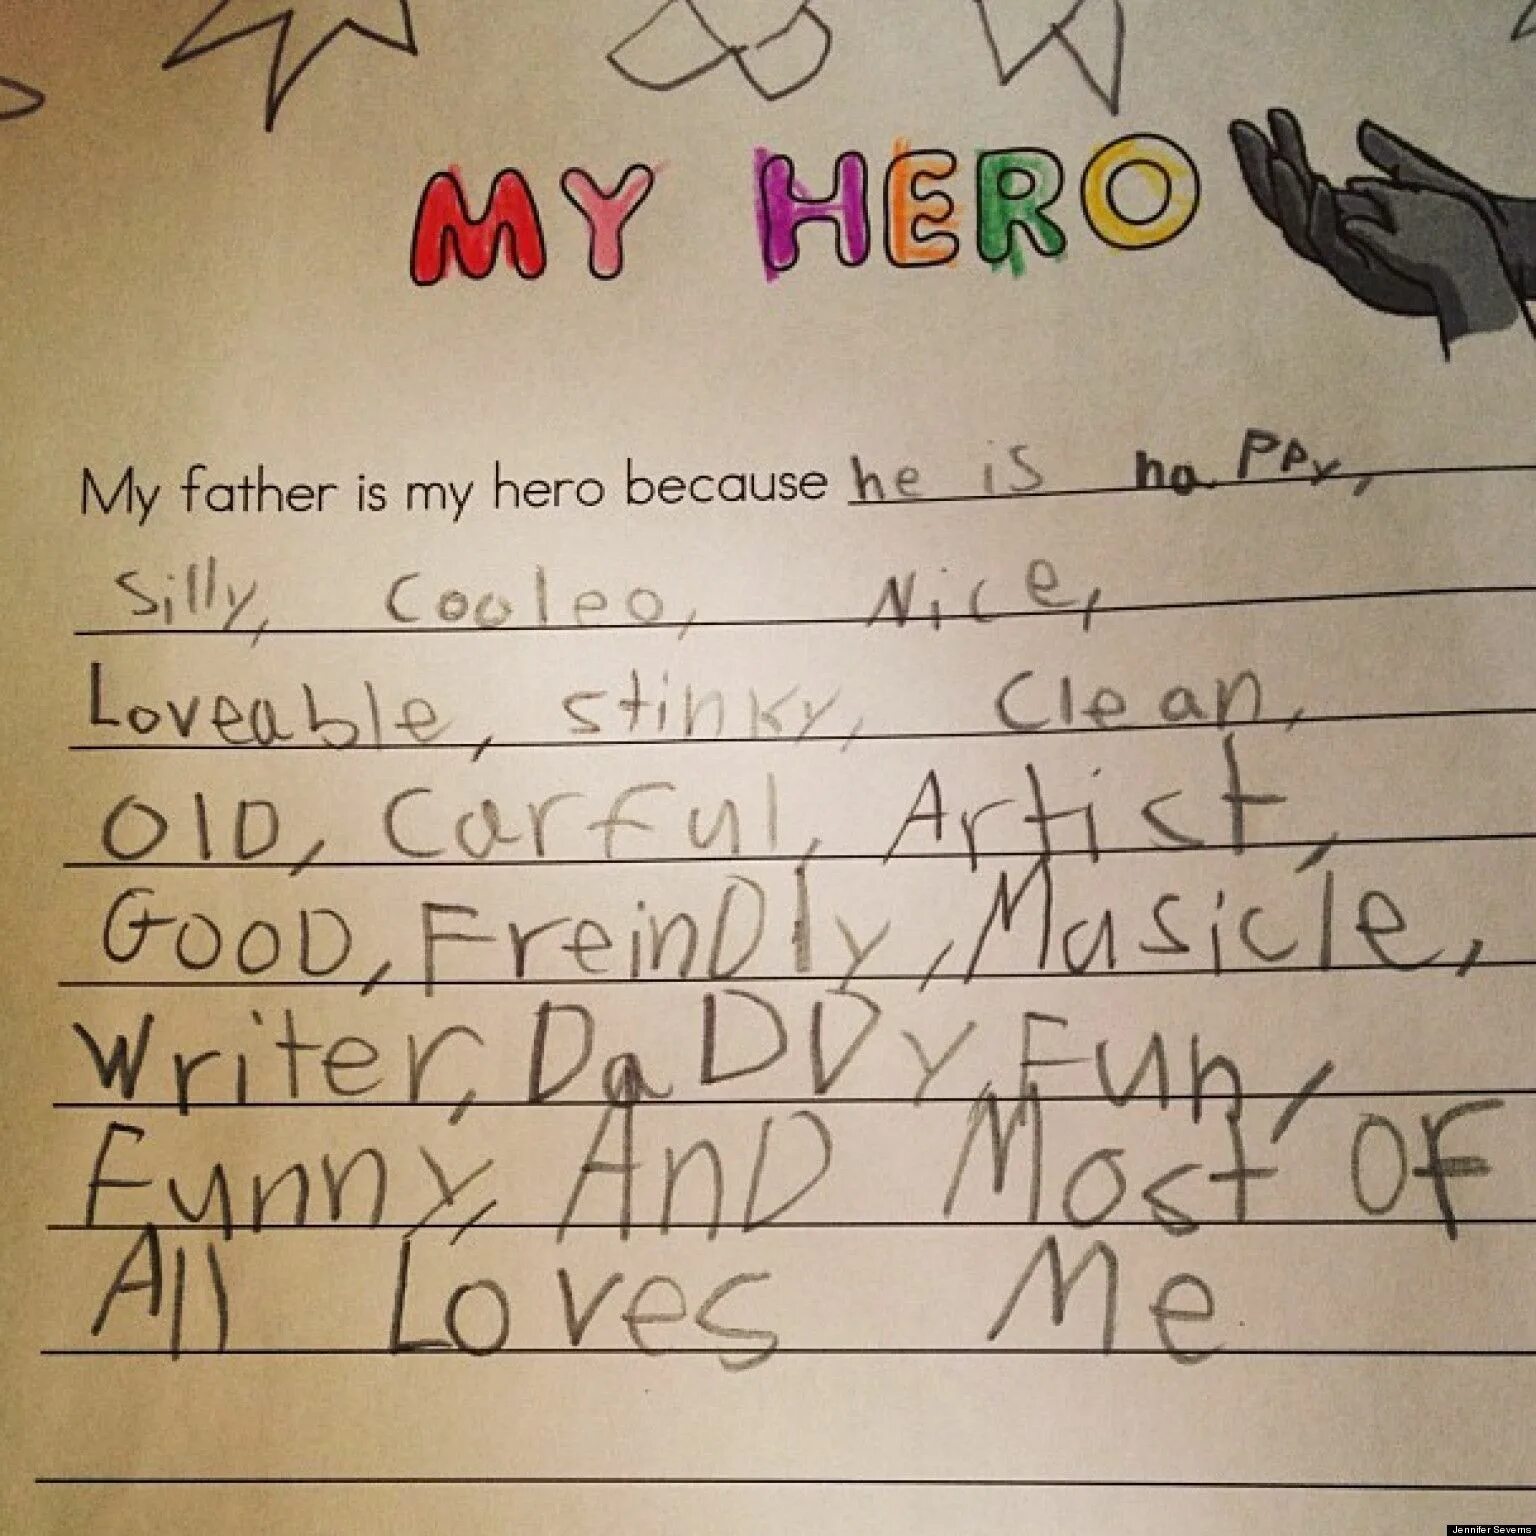 MY HERO
My father is my hero because he is haPPy,
Silly, Cooleo, Nice,
Loveable, stinky, Clean,
OlD, Carful, Artist,
GOOD, FreinDly, Musicle,
Writer, DaDDy, Fun,
Funny, AnD Most OF
All Loves Me
Jennifer Severns